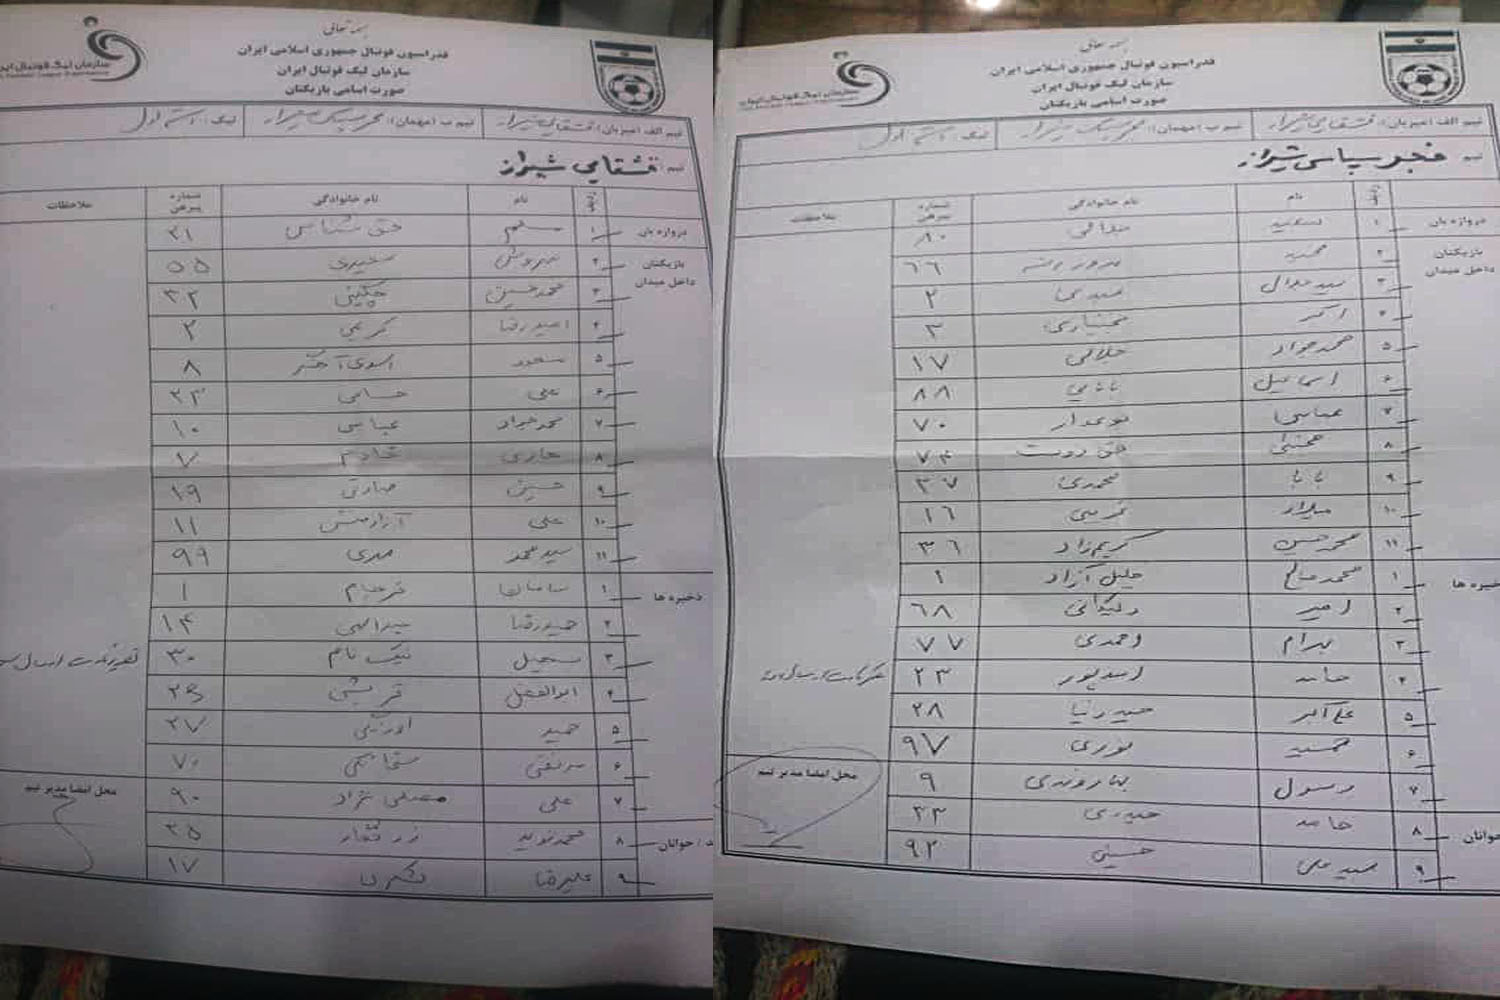 بسمه تعالی
فدراسیون فوتبال جمهوری اسلامی ایران
سازمان لیگ فوتبال ایران
صورت اسامی بازیکنان
سازمان لیگ فوتبال ایران
تیم الف (میزبان): قشقایی شیراز تیم ب (مهمان): فجر سپاسی شیراز لیگ: دسته اول
تیم: قشقایی شیراز
ردیف نام نام خانوادگی شماره پیرهن ملاحظات
دروازه بان ۱ میثم حق شناس ۲۱
بازیکنان داخل میدان ۲ سروش ۵۵
۳ محمدحسین چگینی ۳۲
۴ امیدرضا کریمی ۲
۵ مسعود ۸
۶ علی حسامی ۲۳
۷ محمدجواد عباسی ۱۰
۸ خادم ۷
۹ حسین صادقی ۱۹
۱۰ علی آزادمنش ۱۱
۱۱ سیدمحمد مهری ۹۹
ذخیره ها ۱ سامان فرجام ۱
۲ حمیدرضا ۱۴
۳ سهیل نیک نام ۳۰
۴ ابوالفضل قریشی
۵ حمید ۲۷
۶ مرتضی ۷۰
۷ علی مصطفی نژاد ۹۰
جوانان ۸ محمدنوید زرنگار
۹ علیرضا ۱۷
محل امضا مدیر تیم
بسمه تعالی
فدراسیون فوتبال جمهوری اسلامی ایران
سازمان لیگ فوتبال ایران
صورت اسامی بازیکنان
سازمان لیگ فوتبال ایران
تیم الف (میزبان): قشقایی شیراز تیم ب (مهمان): فجر سپاسی شیراز لیگ: دسته اول
تیم فجر سپاسی شیراز
ردیف نام نام خانوادگی شماره پیرهن ملاحظات
دروازه بان ۱ سعید ۸۰
بازیکنان داخل میدان ۲ محمد ۶۶
۳ سید جلال عبدی ۲
۴ اکبر بختیاری ۳
۵ محمدجواد خلاقی ۱۷
۶ اسماعیل بابایی ۸۸
۷ عباس نوعدار ۷۰
۸ مجتبی حق دوست ۷۴
۹ بابا محمدی ۳۷
۱۰ میلاد ۱۶
۱۱ محمدحسین کریم زاده ۳۶
ذخیره ها ۱ محمدصالح خلیل آزاد ۱
۲ امیر ۶۸
۳ بهرام احمدی ۷۷
۴ حامد اسدپور ۲۳
۵ علی اکبر حیدرنیا ۲۸
۶ جمشید نوری ۹۷
۷ رسول بهاروندی ۹
جوانان ۸ حامد حیدری ۳۳
۹ سید علی حسینی ۹۲
محل امضا مدیر تیم